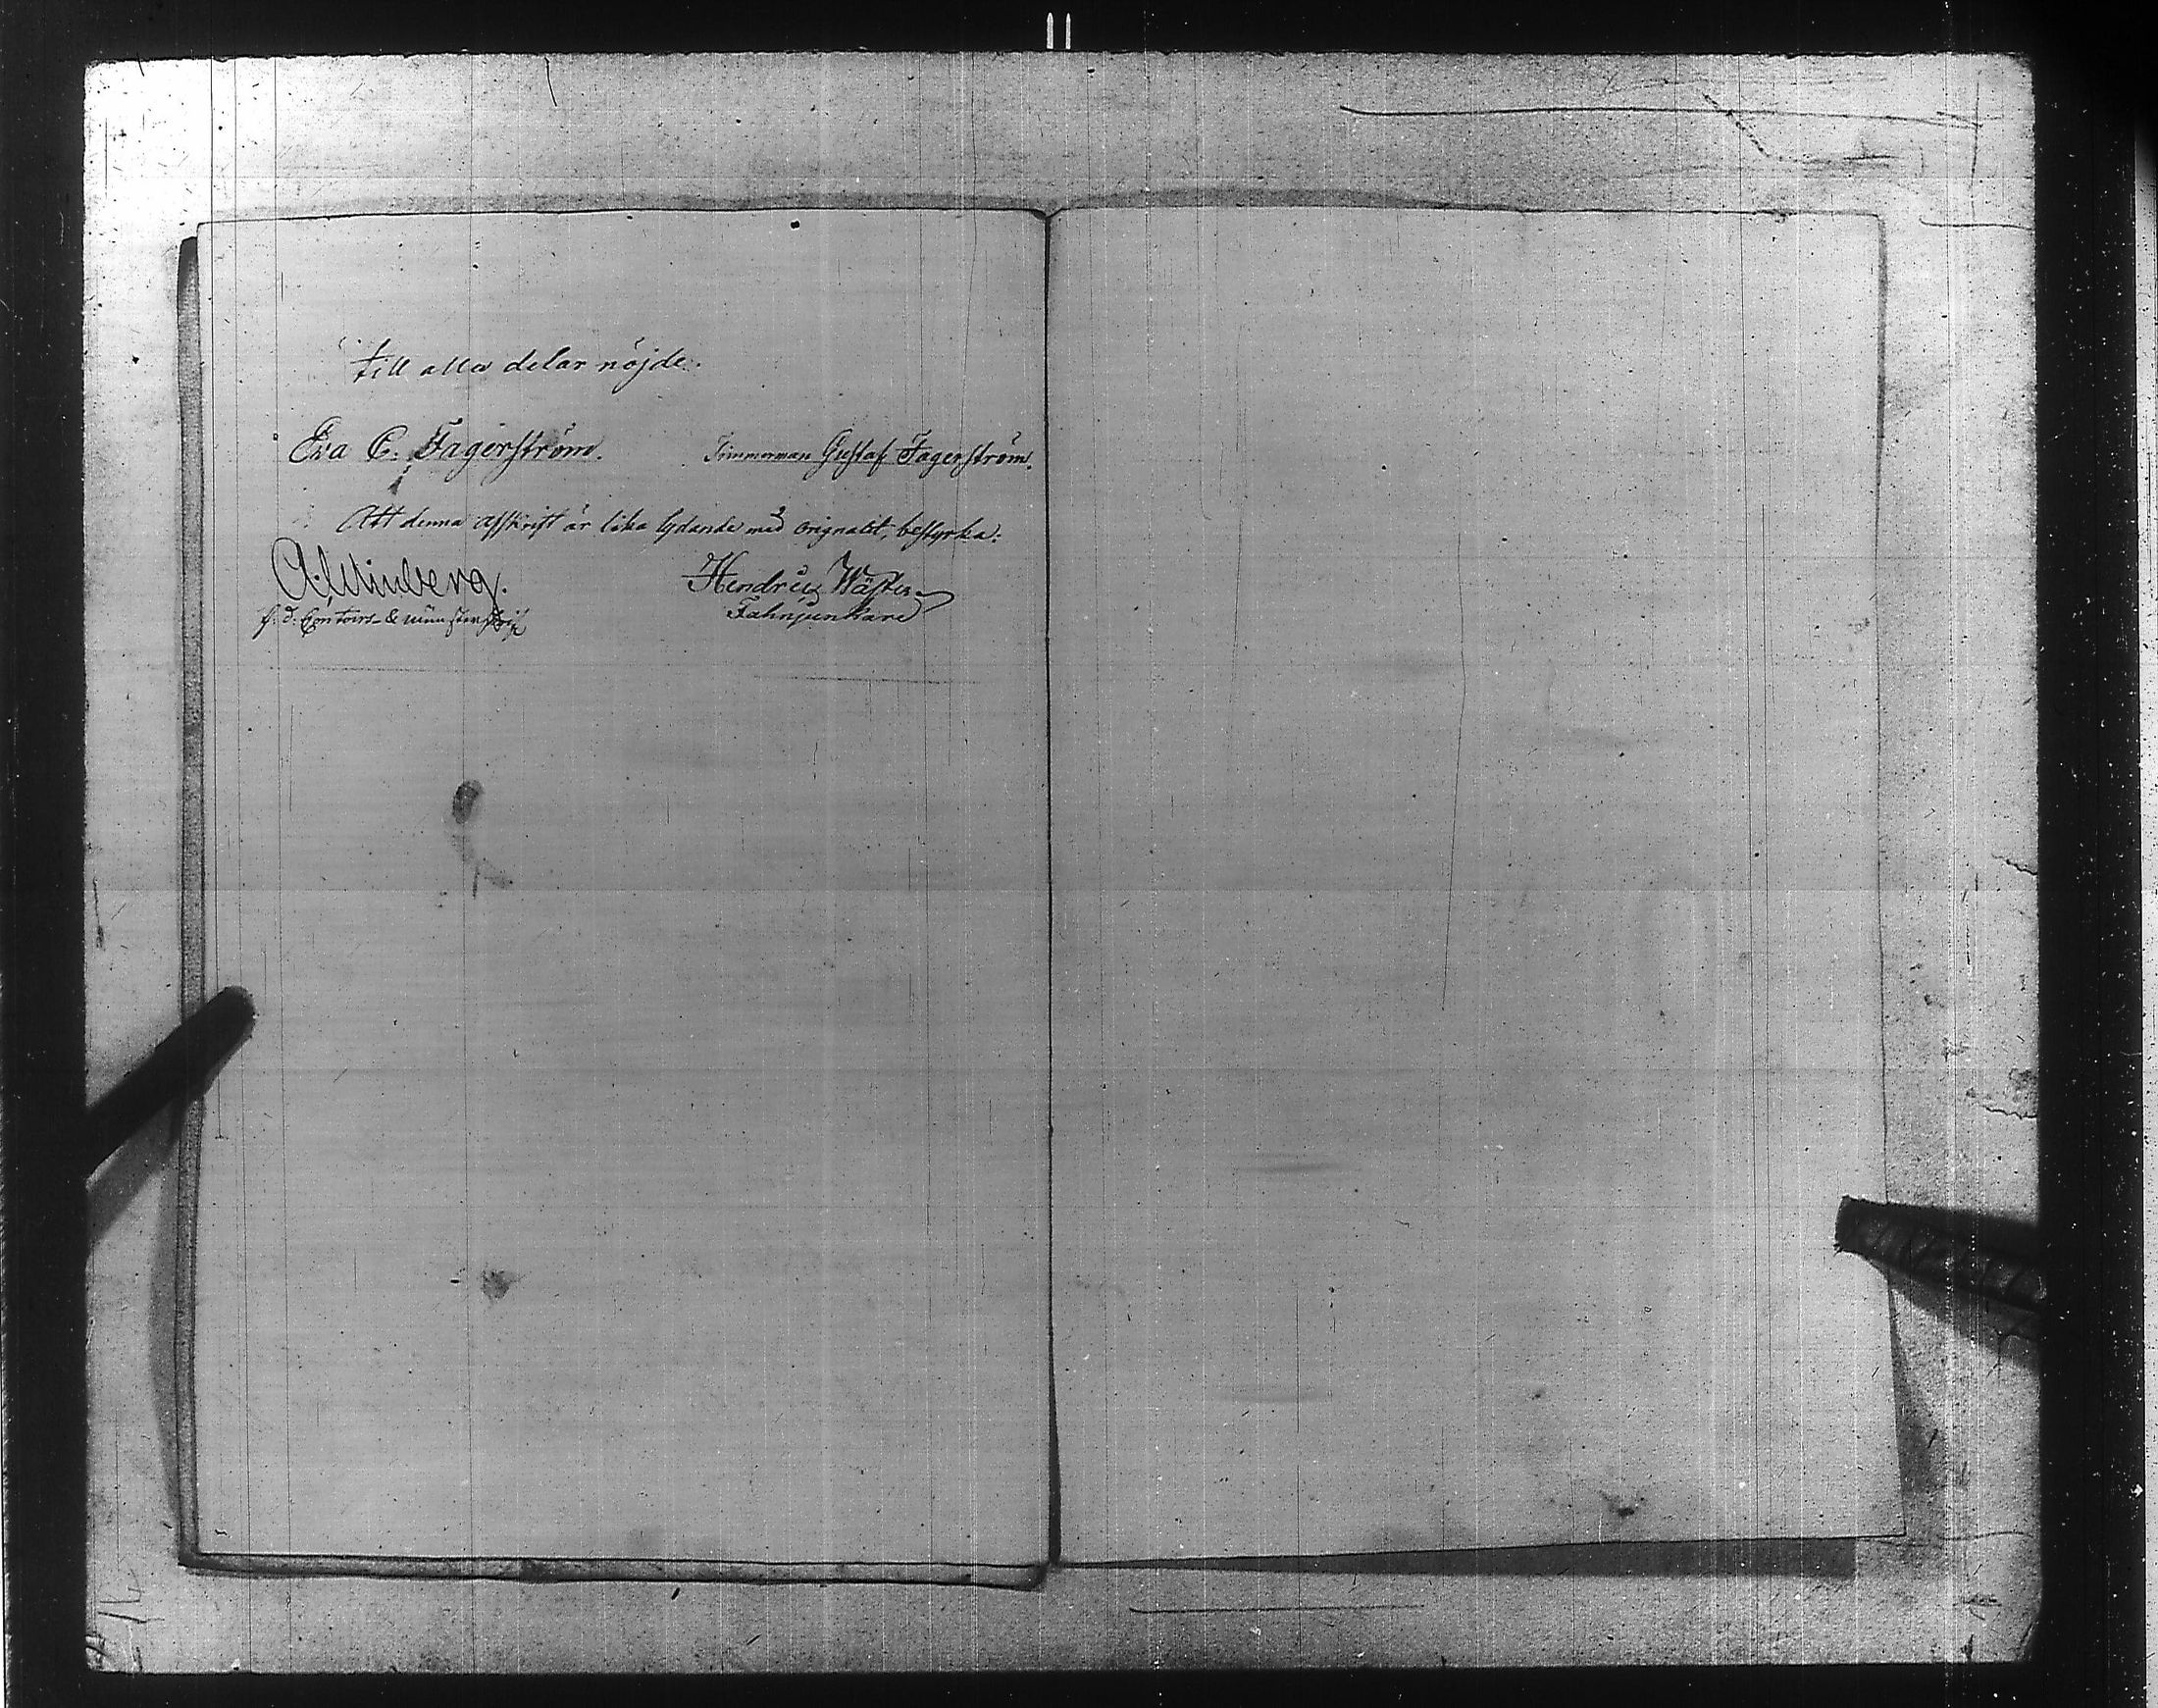 till alla delar nöjde.
Eva C. Fagerström. Timmerman Gustaf Fagerström.
Att denna afskrift är lika lydande med orignalet, bestyrka:
Hendric Wäster
f: d: Contoirs- & mönsterskrif Fahnjunkare